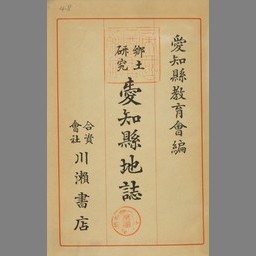 愛知縣教育會編
鄉土
研究
愛知縣地誌
合資
會社
川瀨書店